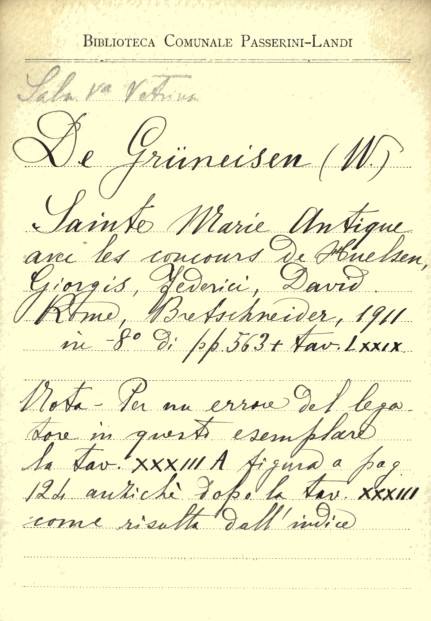 BIBLIOTECA COMUNALE PASSERINI-LANDI
Sala Va Vetrina
De Grüneisen (W.)
Sainte Marie Antique
avec les concours de Huelsen,
Giorgis, Federici, David.
Rome, Bretschneider, 1911
in -8° di pp. 563 + tav. LXXIX
Nota - Per un errore del lega-
tore in questo esemplare
la tav. XXXIII A figura a pag
124 anziché dopo la tav. XXXIII
come risulta dall'indice